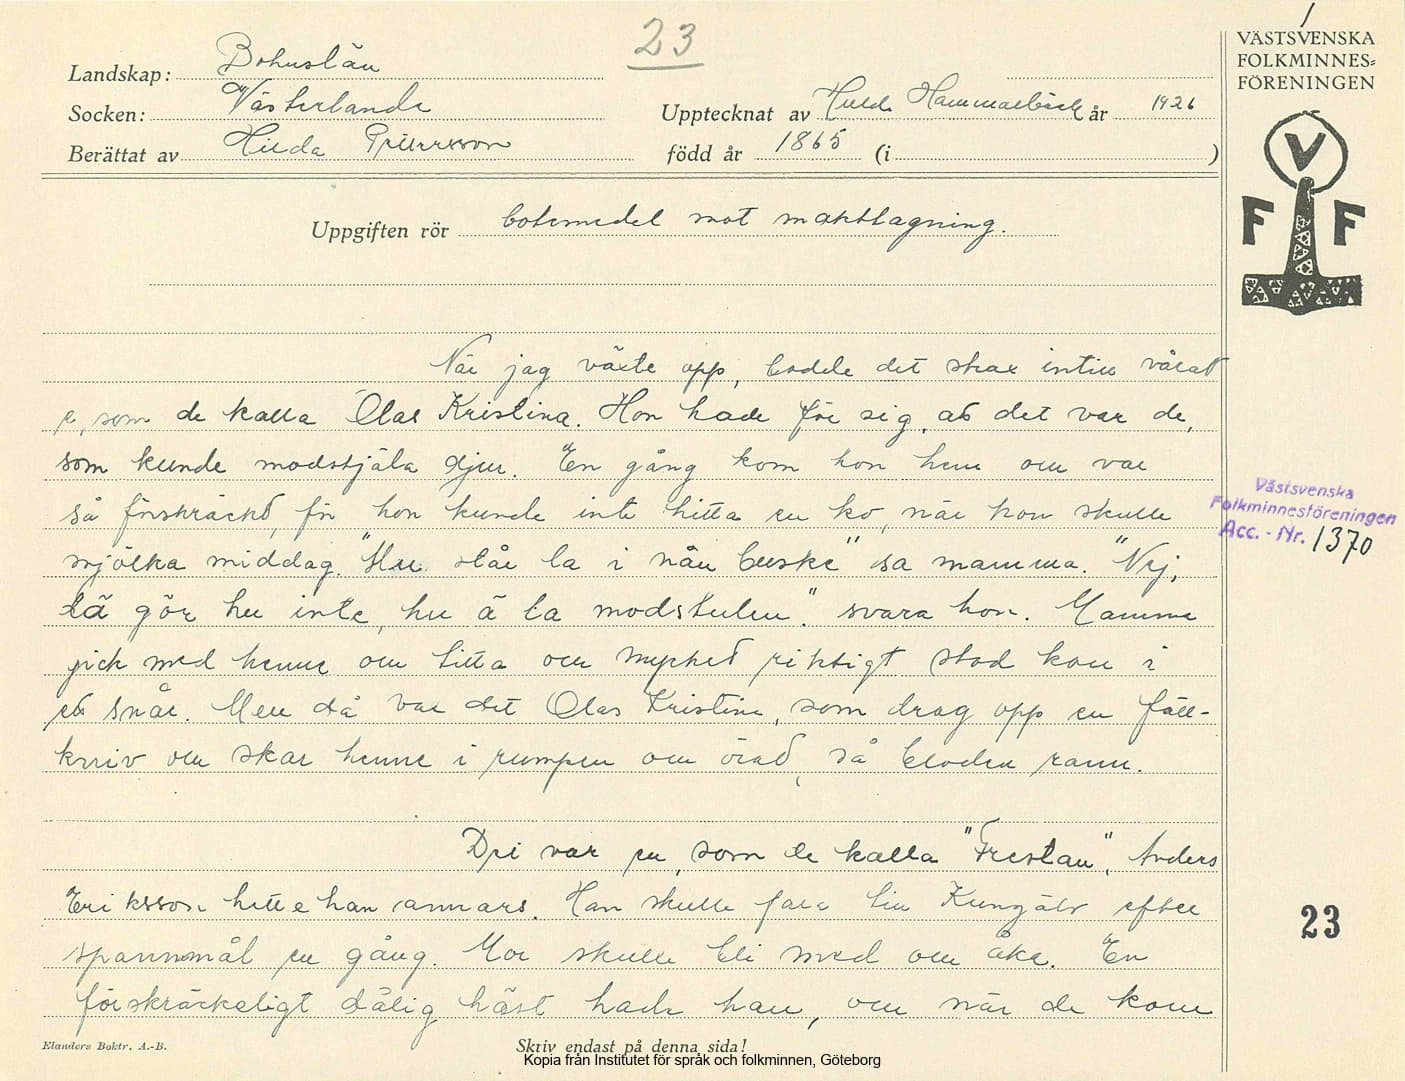 23
VÄSTSVENSKA
FOLKMINNES=
FÖRENINGEN
V
F F
Landskap: Bohuslän
Socken: Västerlanda
Upptecknat av Hulda Hammarbäck år 1926
Berättat av Hilda
född år 1865 (i )
Uppgiften rör botemedel mot makttagning.
När jag växte opp, bodde det strax intill vårat
e, som de kalla Olas Kristina. Hon hade för sig, att det var de,
som kunde modstjäla djur. En gång kom hon hem ou var
så förskräckt, för hon kunde inte hitta en ko, när hon skulle
mjölka middag. "Hu står la i nån buske" sa mamma. "Nej,
dä gör hu inte, hu ä la modstulen." svara hon. Mamma
gick med henne ou titta ou mycket riktigt stod kon i
ett snår. Men då var det Olas Kristina, som drog opp en fäll-
kniv ou skar henne i rumpen ou örat, så bloden rann.
Dei var en, som de kalla "Frestan", Anders
Eriksson hette han annars. Han skulle fara till Kungälv efter
spannmål en gång. Mor skulle bli med ou åka. En
förskräckeligt dålig häst hade han, ou när de kom
Västsvenska
Folkminnesföreningen
Acc. - Nr. 1370
23
Elanders Boktr. A.-B.
Skriv endast på denna sida!
Kopia från Institutet för språk och folkminnen, Göteborg